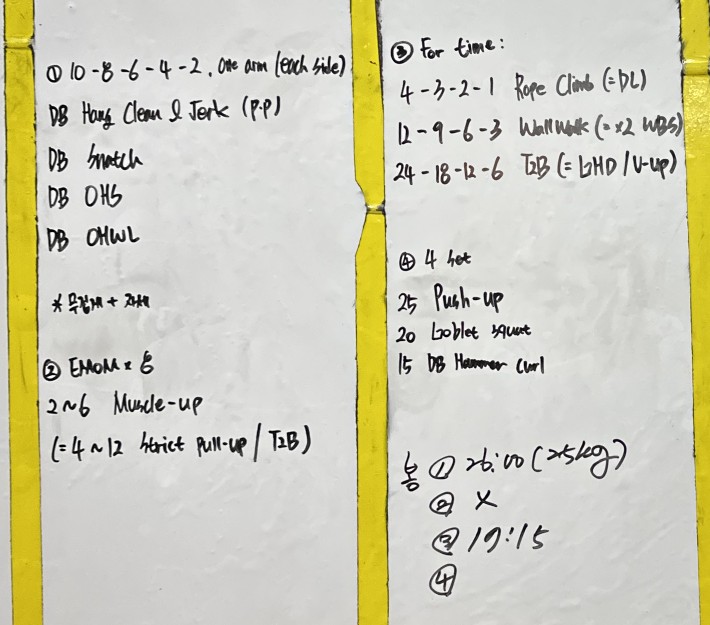 ① 10-8-6-4-2. One arm (each side)
DB Hang Clean & Jerk (P.P)
DB Snatch
DB OHS
DB OHWL
* 무겁게 + 자세
② EMOM x 6
2~6 Muscle-up
(=4~12 Strict Pull-up / T2B)
③ For time:
4-3-2-1 Rope Climb (=DL)
12-9-6-3 Wall Walk (=x2 WBS)
24-18-12-6 T2B (=GHD / V-up)
④ 4 Set
25 Push-up
20 Goblet squat
15 DB Hammer Curl
봉 ① 26:00 (25kg)
② X
③ 19:15
④